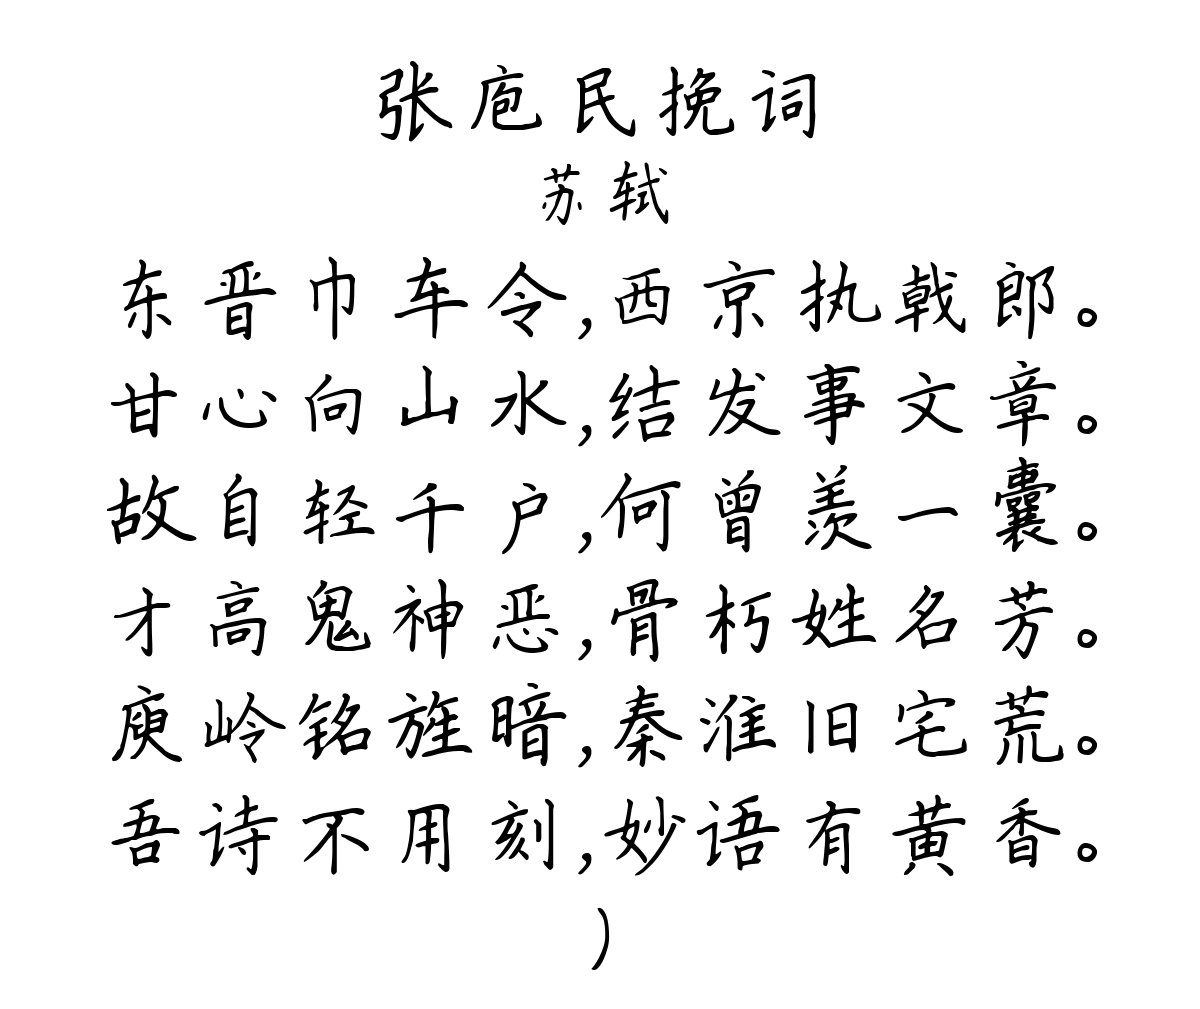 张庖民挽词
苏轼
东晋巾车令,西京执戟郎。
甘心向山水,结发事文章。
故自轻千户,何曾羡一囊。
才高鬼神恶,骨朽姓名芳。
庾岭铭旌暗,秦淮旧宅荒。
吾诗不用刻,妙语有黄香。
)